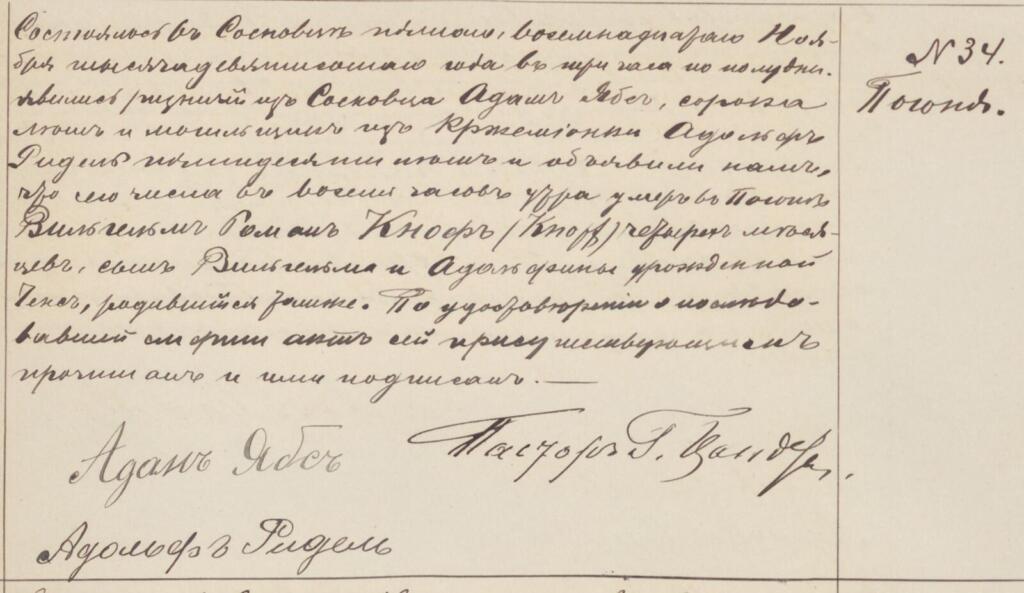 Состоялось въ Сосновицѣ пятаго, восемнадцатаго Ноя-
бря тысячадевятисотаго года въ три часа по полудни.
явились ризничій изъ Сосновца Адамъ Ябсъ, сорока
лѣтъ и могильщикъ изъ Кржеміонки Адольфъ
Ридель пятидесяти лѣтъ и объявили намъ,
что сего числа въ восемь часовъ утра умеръ въ Погони
Вильгельмъ Романъ Кнофъ (Knoff) четырехъ мѣся-
цевъ, сынъ Вильгельма и Адольфины урожденной
родившійся тамже. По удостовѣреніи о послѣдо-
вавшей смерти актъ сей присутствующимъ
прочитанъ и ими подписанъ. —
Адамъ Ябсъ
Пасторъ Г.
Адольфъ Ридель
N 34.
Погонь.